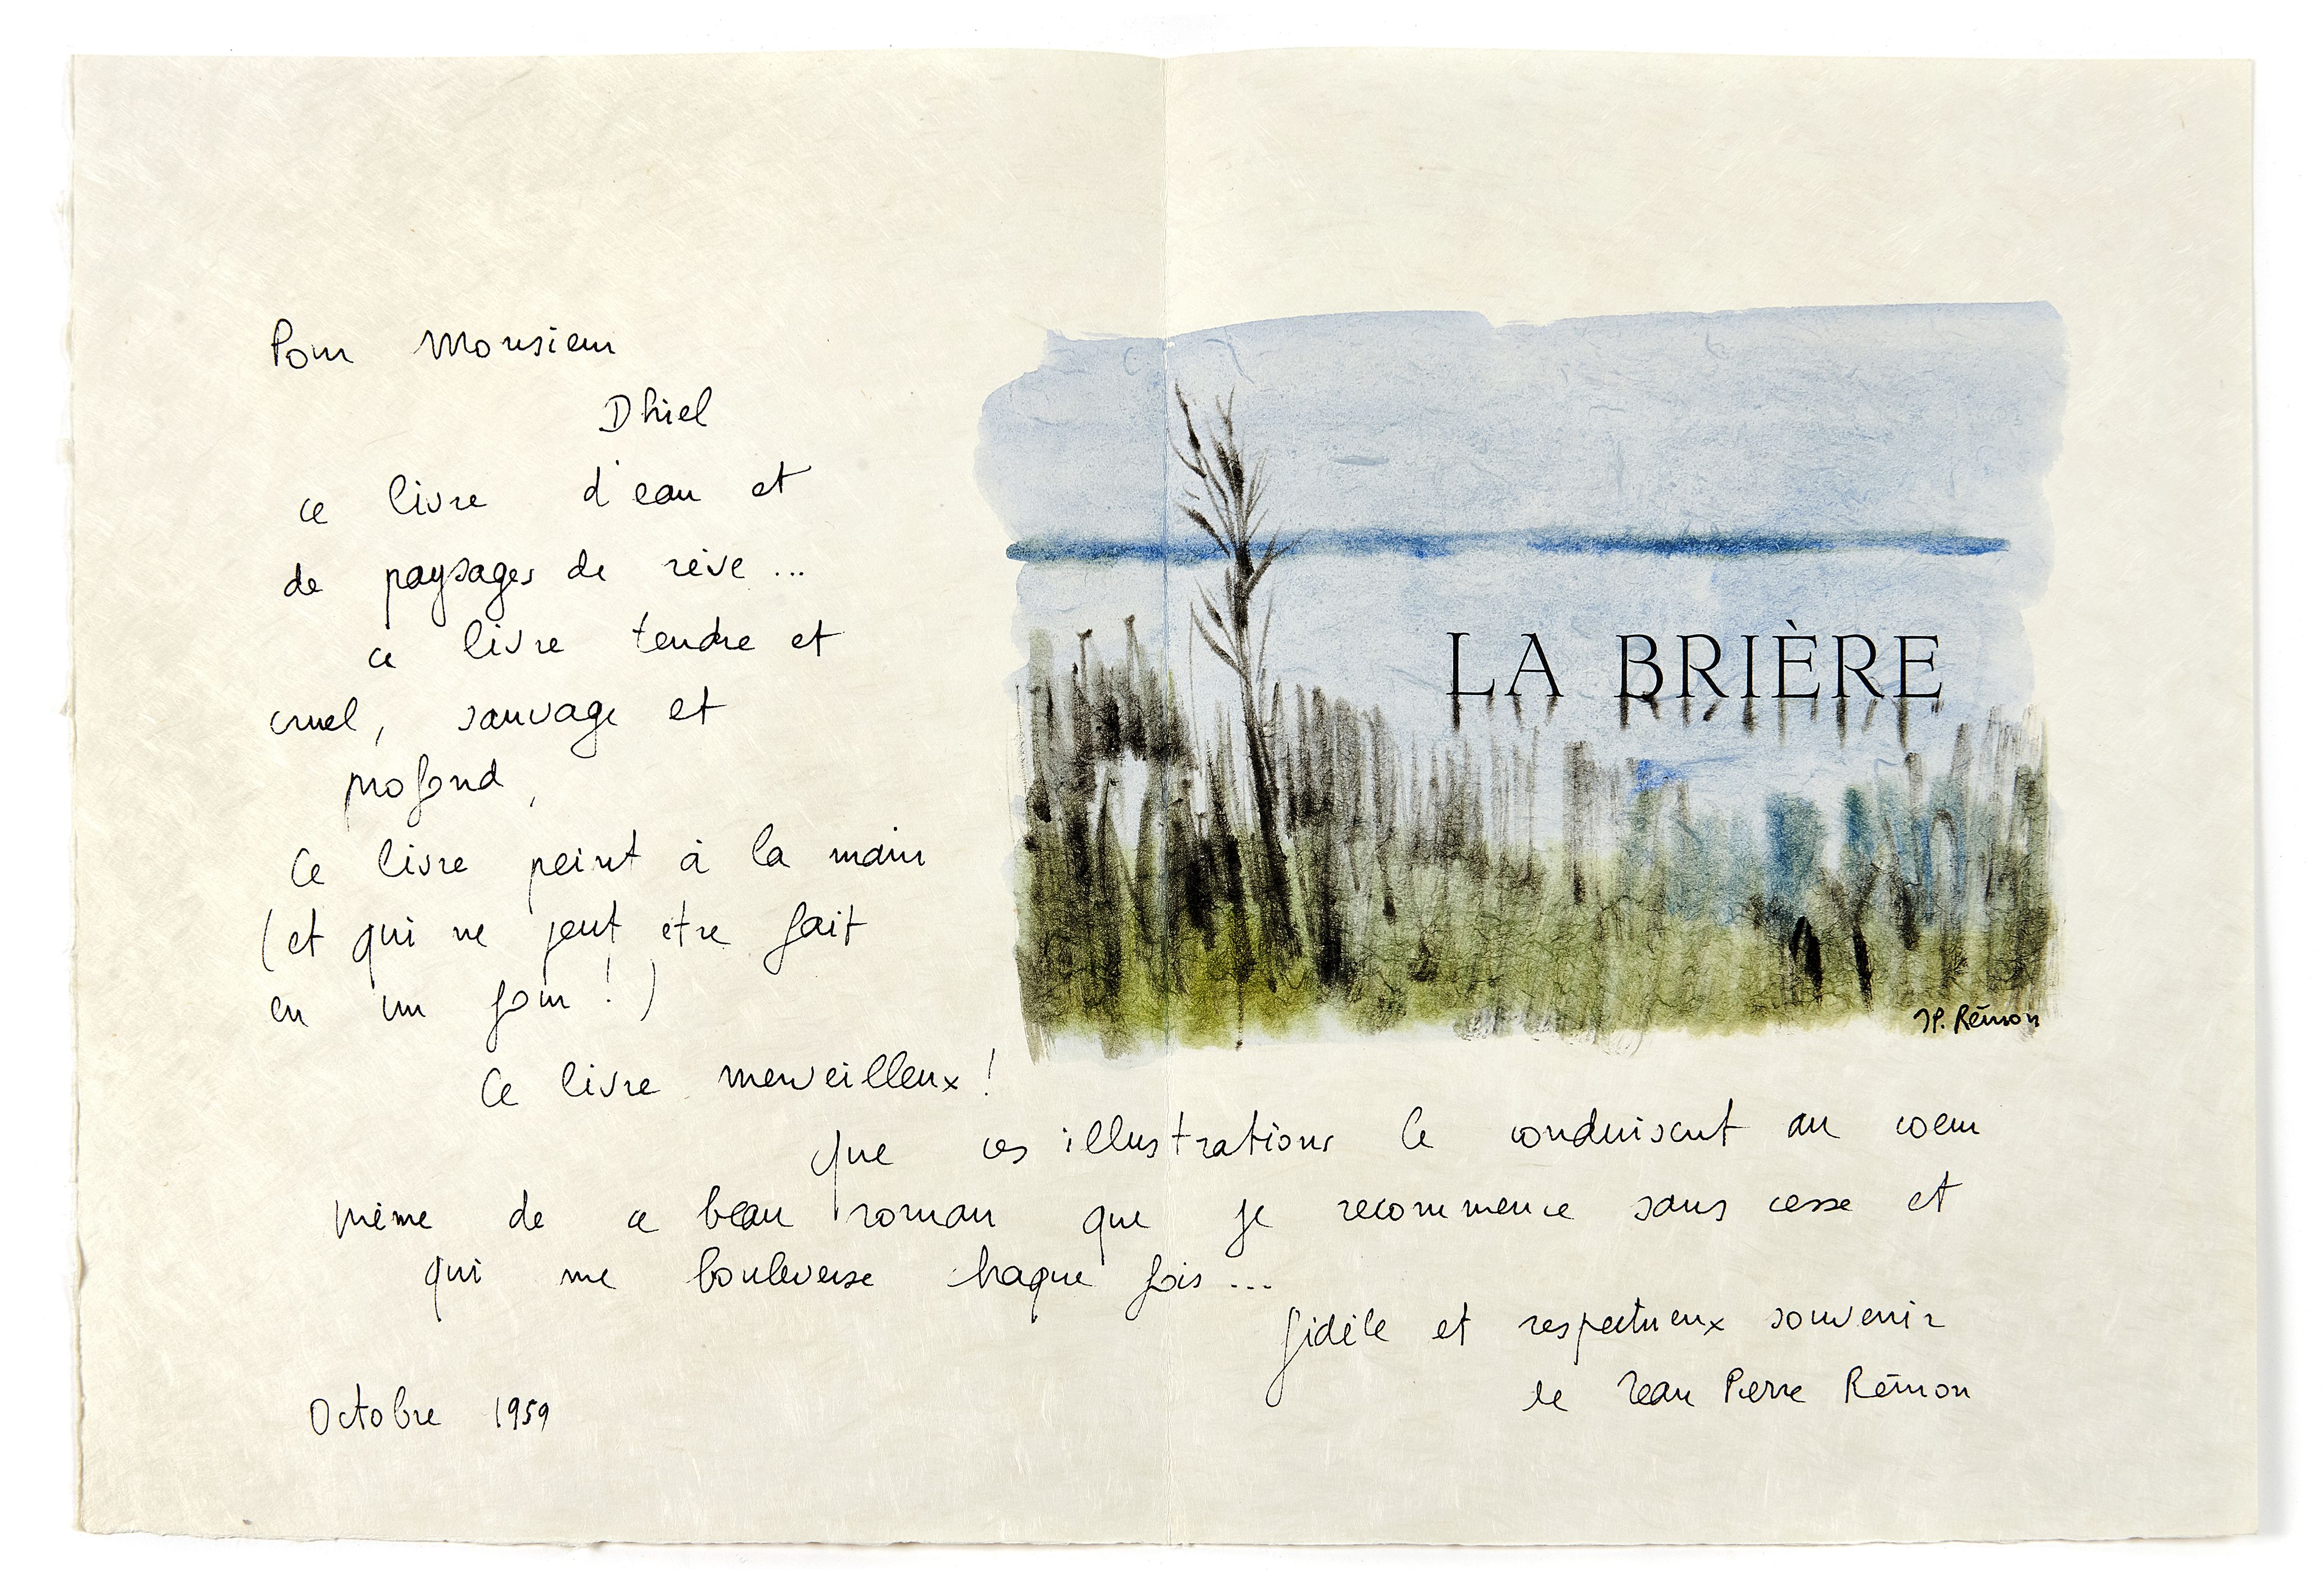 Pour Monsieur
Dhiel
ce livre d'eau et
de paysages de rêve ...
ce livre tendre et
cruel, sauvage et
profond,
Ce livre peint à la main
(et qui ne peut etre fait
en un jour !)
Ce livre merveilleux !
que ces illustrations le conduisent au coeur
même de ce beau roman que je recommence sans cesse et
qui me bouleverse chaque fois ...
fidèle et respectueux souvenir
de Jean Pierre Rémon
Octobre 1959
LA BRIÈRE
JP. Rémon